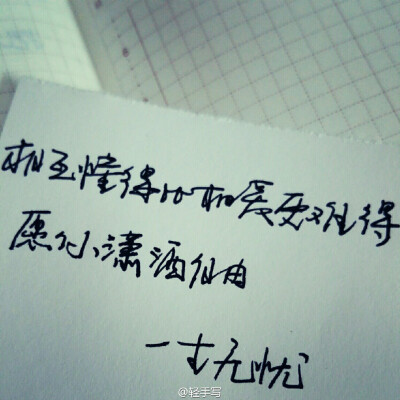 相互懂得比相爱更难得
愿你潇洒自由
一才无忧
@轻手写